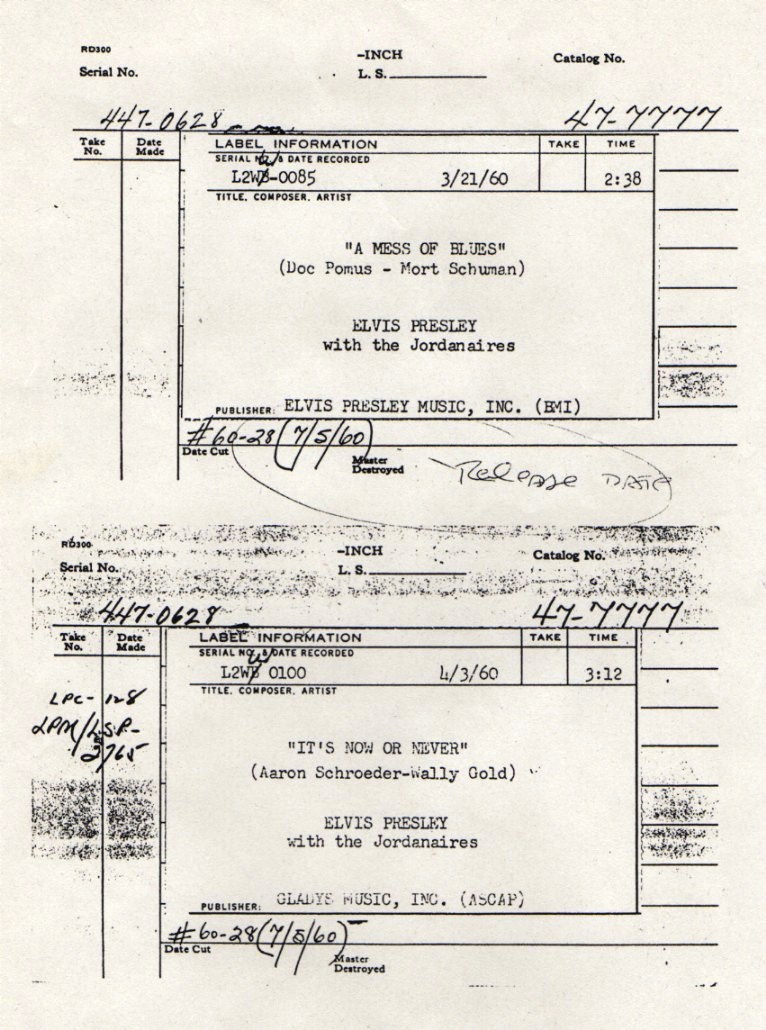 RD300 -INCH Catalog No.
Serial No. L. S.
447-0628 47-7777
Take No. Date Made LABEL INFORMATION TAKE TIME
SERIAL NO. & DATE RECORDED
L2WB-0085 3/21/60 2:38
W
TITLE, COMPOSER, ARTIST
"A MESS OF BLUES"
(Doc Pomus - Mort Schuman)
ELVIS PRESLEY
with the Jordanaires
PUBLISHER: ELVIS PRESLEY MUSIC, INC. (BMI)
#60-28 (7/5/60)
Date Cut Master Destroyed
Release DATE
RD300 -INCH Catalog No.
Serial No. L. S.
447-0628 47-7777
Take No. Date Made LABEL INFORMATION TAKE TIME
SERIAL NO. & DATE RECORDED
L2WB 0100 4/3/60 3:12
W
TITLE, COMPOSER, ARTIST
LPC-128
LPM/LSP-
2765
"IT'S NOW OR NEVER"
(Aaron Schroeder-Wally Gold)
ELVIS PRESLEY
with the Jordanaires
PUBLISHER: GLADYS MUSIC, INC. (ASCAP)
#60-28 (7/5/60)
Date Cut Master Destroyed